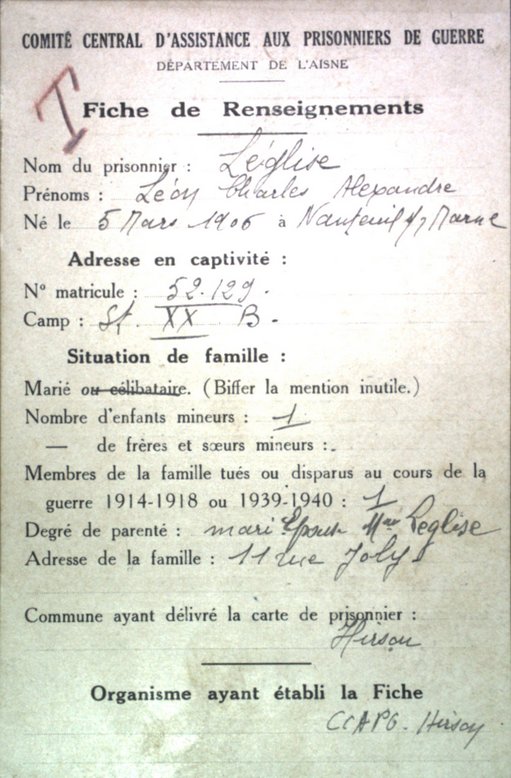 COMITÉ CENTRAL D'ASSISTANCE AUX PRISONNIERS DE GUERRE
DÉPARTEMENT DE L'AISNE
T
Fiche de Renseignements
Nom du prisonnier : Léglise
Prénoms : Léon Charles Alexandre
Né le 5 Mars 1906 à Nanteuil s/ Marne
Adresse en captivité :
N° matricule : 52.129.
Camp : St. XX B -
Situation de famille :
Marié ou célibataire. (Biffer la mention inutile.)
Nombre d'enfants mineurs : 1
— de frères et sœurs mineurs :
Membres de la famille tués ou disparus au cours de la
guerre 1914-1918 ou 1939-1940 : 1
Degré de parenté : mari Epouse Mme Leglise
Adresse de la famille : 11 rue Joly
Commune ayant délivré la carte de prisonnier :
Hirson
Organisme ayant établi la Fiche
CCAPG. Hirson